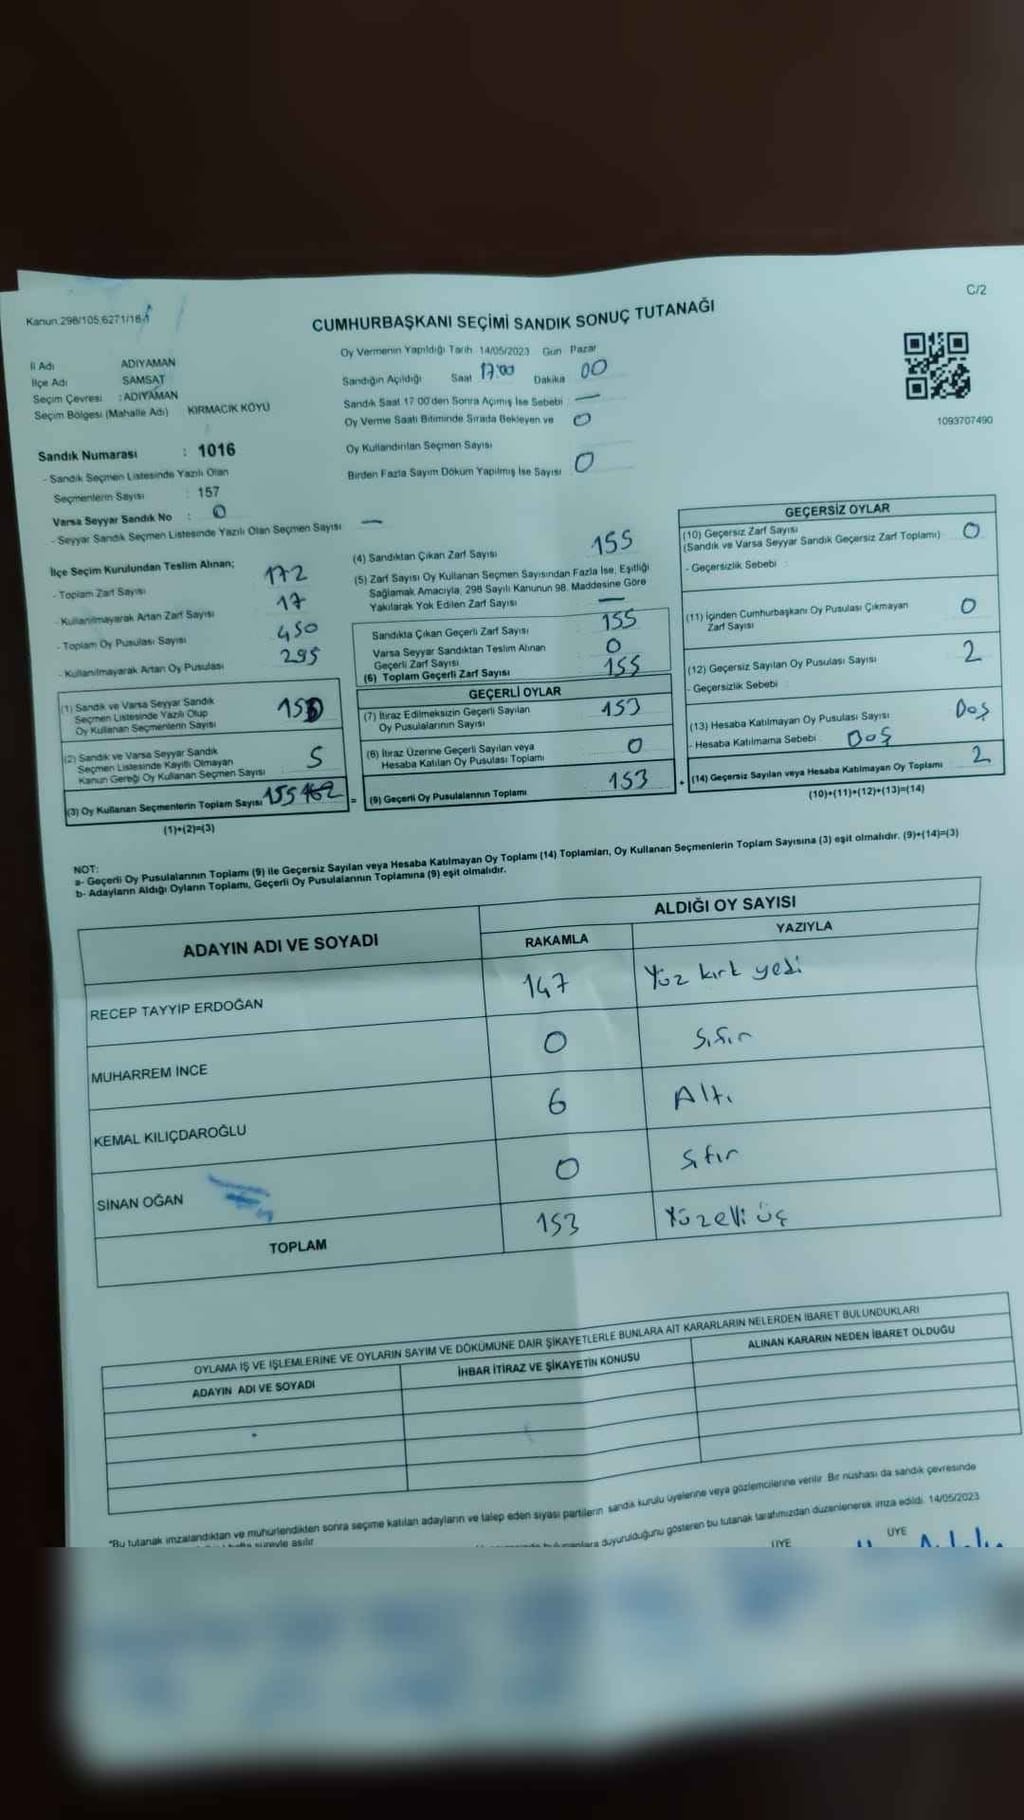 C/2
Kanun:298/105,6271/18-1
CUMHURBAŞKANI SEÇİMİ SANDIK SONUÇ TUTANAĞI
İl Adı ADIYAMAN
İlçe Adı SAMSAT
Seçim Çevresi : ADIYAMAN
Seçim Bölgesi (Mahalle Adı) KIRMACIK KÖYÜ
Sandık Numarası : 1016
- Sandık Seçmen Listesinde Yazılı Olan
Seçmenlerin Sayısı : 157
Varsa Seyyar Sandık No : 0
- Seyyar Sandık Seçmen Listesinde Yazılı Olan Seçmen Sayısı —
Oy Vermenin Yapıldığı Tarih 14/05/2023 Gün Pazar
Sandığın Açıldığı Saat 17:00 Dakika 00
Sandık Saat 17:00'den Sonra Açılmış İse Sebebi —
Oy Verme Saati Bitiminde Sırada Bekleyen ve 0
Oy Kullandırılan Seçmen Sayısı
Birden Fazla Sayım Döküm Yapılmış İse Sayısı 0
1093707490
İlçe Seçim Kurulundan Teslim Alınan;
- Toplam Zarf Sayısı 172
- Kullanılmayarak Artan Zarf Sayısı 17
- Toplam Oy Pusulası Sayısı 450
- Kullanılmayarak Artan Oy Pusulası 295
(1) Sandık ve Varsa Seyyar Sandık
Seçmen Listesinde Yazılı Olup
Oy Kullanan Seçmenlerin Sayısı 150
(2) Sandık ve Varsa Seyyar Sandık
Seçmen Listesinde Kayıtlı Olmayan
Kanun Gereği Oy Kullanan Seçmen Sayısı 5
(3) Oy Kullanan Seçmenlerin Toplam Sayısı 155
(1)+(2)=(3)
(4) Sandıktan Çıkan Zarf Sayısı 155
(5) Zarf Sayısı Oy Kullanan Seçmen Sayısından Fazla İse, Eşitliği
Sağlamak Amacıyla, 298 Sayılı Kanunun 98. Maddesine Göre
Yakılarak Yok Edilen Zarf Sayısı —
Sandıkta Çıkan Geçerli Zarf Sayısı 155
Varsa Seyyar Sandıktan Teslim Alınan
Geçerli Zarf Sayısı 0
(6) Toplam Geçerli Zarf Sayısı 155
GEÇERLİ OYLAR
(7) İtiraz Edilmeksizin Geçerli Sayılan
Oy Pusulalarının Sayısı 153
(8) İtiraz Üzerine Geçerli Sayılan veya
Hesaba Katılan Oy Pusulası Toplamı 0
(9) Geçerli Oy Pusulalarının Toplamı 153
GEÇERSİZ OYLAR
(10) Geçersiz Zarf Sayısı 0
(Sandık ve Varsa Seyyar Sandık Geçersiz Zarf Toplamı)
- Geçersizlik Sebebi :
(11) İçinden Cumhurbaşkanı Oy Pusulası Çıkmayan
Zarf Sayısı 0
(12) Geçersiz Sayılan Oy Pusulası Sayısı 2
- Geçersizlik Sebebi :
(13) Hesaba Katılmayan Oy Pusulası Sayısı Boş
- Hesaba Katılmama Sebebi : Boş
(14) Geçersiz Sayılan veya Hesaba Katılmayan Oy Toplamı 2
(10)+(11)+(12)+(13)=(14)
NOT:
a- Geçerli Oy Pusulalarının Toplamı (9) ile Geçersiz Sayılan veya Hesaba Katılmayan Oy Toplamı (14) Toplamları, Oy Kullanan Seçmenlerin Toplam Sayısına (3) eşit olmalıdır. (9)+(14)=(3)
b- Adayların Aldığı Oyların Toplamı, Geçerli Oy Pusulalarının Toplamına (9) eşit olmalıdır.
ADAYIN ADI VE SOYADI
ALDIĞI OY SAYISI
RAKAMLA YAZIYLA
RECEP TAYYİP ERDOĞAN 147 Yüz kırk yedi
MUHARREM İNCE 0 Sıfır
KEMAL KILIÇDAROĞLU 6 Altı
SİNAN OĞAN 0 Sıfır
TOPLAM 153 Yüzelli üç
OYLAMA İŞ VE İŞLEMLERİNE VE OYLARIN SAYIM VE DÖKÜMÜNE DAİR ŞİKAYETLERLE BUNLARA AİT KARARLARIN NELERDEN İBARET BULUNDUKLARI
ADAYIN ADI VE SOYADI İHBAR İTİRAZ VE ŞİKAYETİN KONUSU ALINAN KARARIN NEDEN İBARET OLDUĞU
*Bu tutanak imzalandıktan ve mühürlendikten sonra seçime katılan adayların ve talep eden siyasi partilerin sandık kurulu üyelerine veya gözlemcilerine verilir. Bir nüshası da sandık çevresinde
süreyle asılır
duyurulduğunu gösteren bu tutanak tarafımızdan düzenlenerek imza edildi. 14/05/2023
ÜYE ÜYE